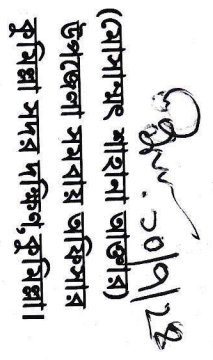 ১০/৭/২৪
(মোসাম্মৎ শাহনা আক্তার)
উপজেলা সমবায় অফিসার
কুমিল্লা সদর দক্ষিণ, কুমিল্লা।